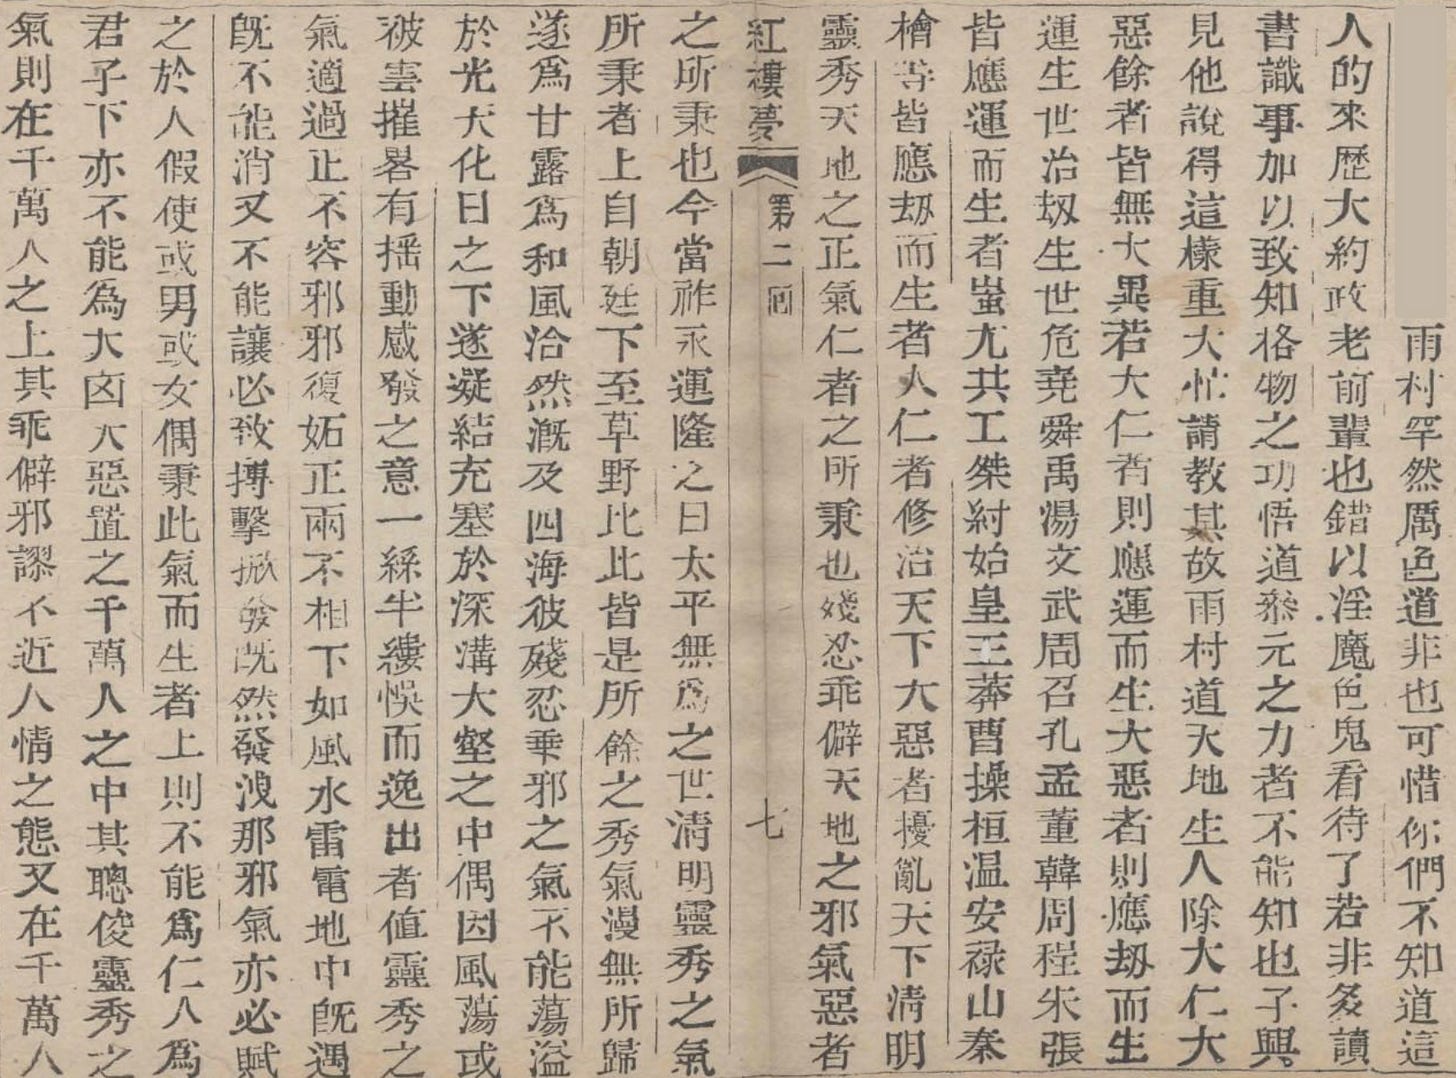 雨村罕然厲色道非也可惜你們不知道這
人的來歷大約政老前輩也錯以淫魔色鬼看待了若非多讀
書識事加以致知格物之功悟道叅元之力者不能知也子興
見他說得這樣重大忙請教其故雨村道天地生人除大仁大
惡餘者皆無大異若大仁者則應運而生大惡者則應劫而生
運生世治劫生世危堯舜禹湯文武周召孔孟董韓周程朱張
皆應運而生者蚩尤共工桀紂始皇王莽曹操桓温安禄山秦
檜等皆應劫而生者人仁者修治天下大惡者擾亂天下清明
靈秀天地之正氣仁者之所秉也殘忍乖僻天地之邪氣惡者
紅樓夢 第二回 七
之所秉也今當祚永運隆之日太平無為之世清明靈秀之氣
所秉者上自朝廷下至草野比比皆是所餘之秀氣漫無所歸
遂爲甘露爲和風洽然溉及四海彼殘忍乖邪之氣不能蕩溢
於光天化日之下遂凝結充塞於深溝大壑之中偶因風蕩或
被雲摧畧有揺動感發之意一絲半縷悞而逸出者值靈秀之
氣適過正不容邪邪復妬正兩不相下如風水雷電地中旣遇
旣不能消又不能讓必致搏擊掀發旣然發洩那邪氣亦必賦
之於人假使或男或女偶秉此氣而生者上則不能爲仁人爲
君子下亦不能為大凶大惡置之千萬人之中其聰俊靈秀之
氣則在千萬人之上其乖僻邪謬不近人情之態又在千萬人